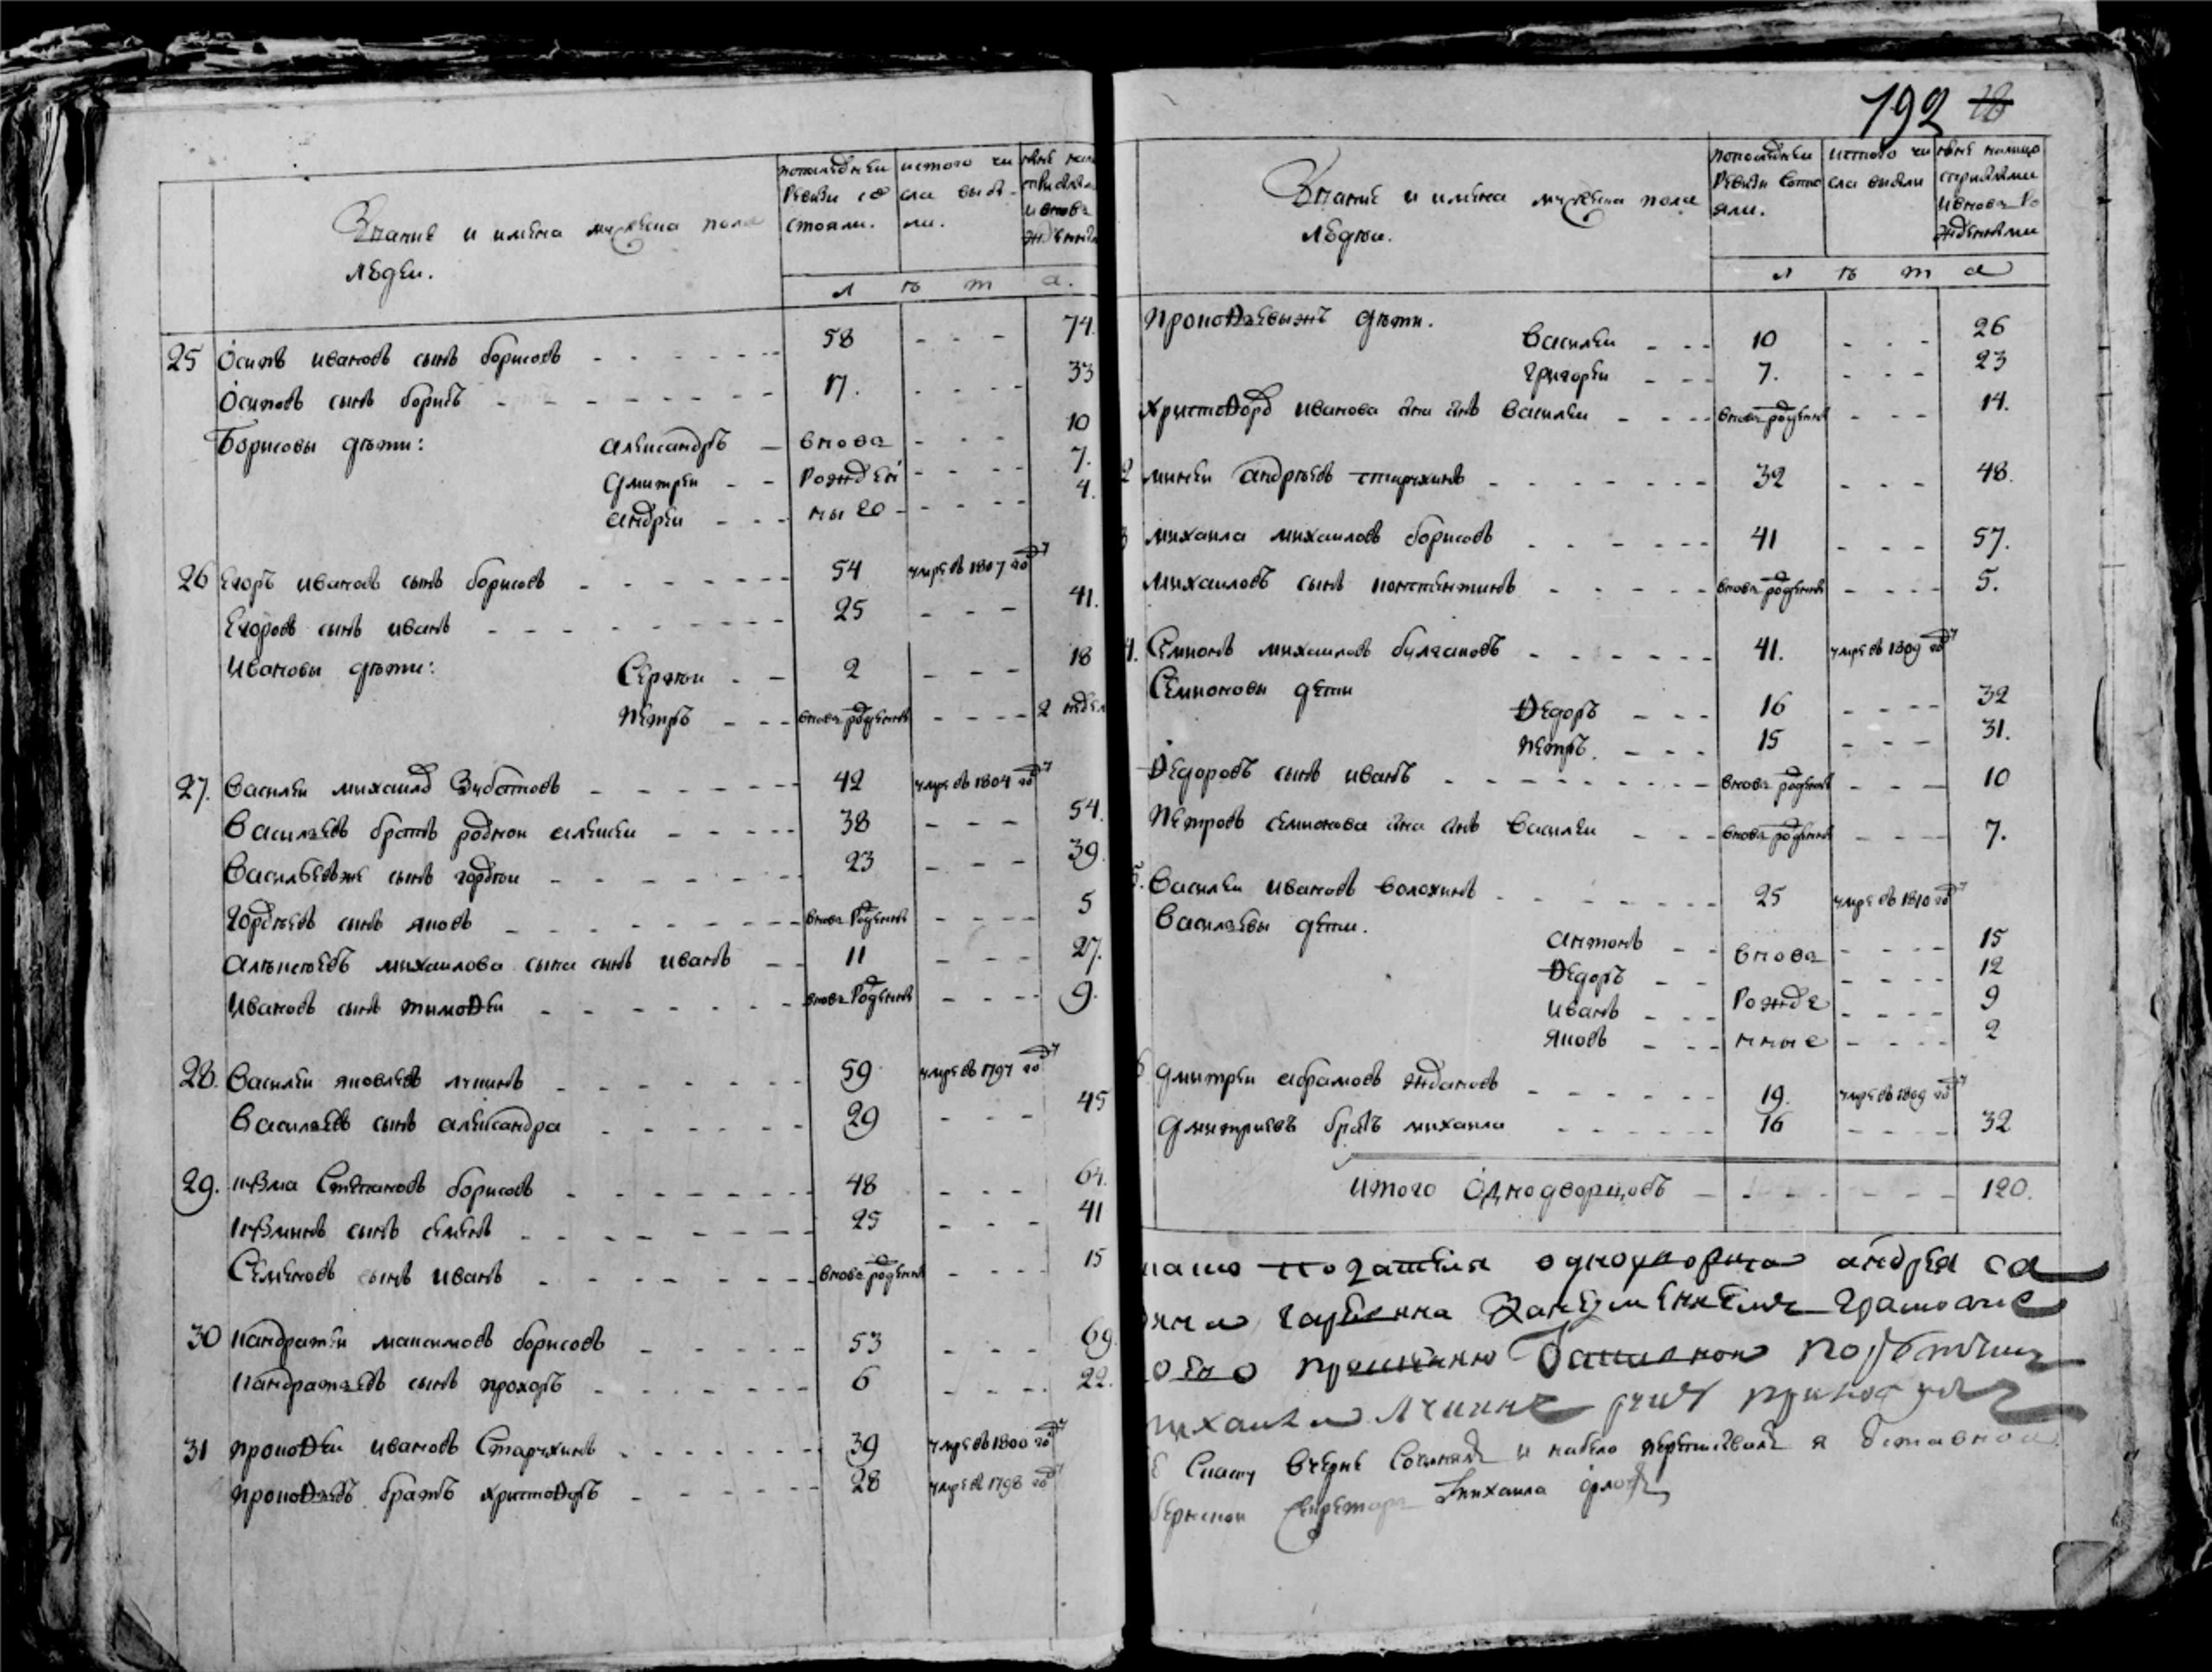 192 18
Звание и имена мужеска пола
людеи.
попоследнеи ревизи состояли.
ис того числа выбыли.
лѣта.
25 Осипъ ивановъ сынъ борисовъ 58 - - - 74.
Осиповъ сынъ борисъ 17. - - - 33
Борисовы дѣти: александръ внова - - - 10
дмитреи рожден - - - 7.
андреи ные - - - 4.
26 Егоръ ивановъ сынъ борисовъ 54 умре въ 1807 году
Егоровъ сынъ иванъ 25 - - - 41.
Ивановы дѣти: Сергеи 2 - - - 18
петръ вновь рожденъ - - - 2 недел
27. Василеи михаилов Зубатовъ 42 умре въ 1804 году
Васильевъ братъ роднои алексеи 38 - - - 54.
Васильевъ же сынъ гордеи 23 - - - 39.
Гордѣевъ сынъ яковъ вновь рожденъ - - - 5
алѣксѣевъ михаилова сына сынъ иванъ 11 - - - 27.
Ивановъ сынъ тимоѳеи вновь рожденъ - - - 9.
28. Василеи яковлевъ лунинъ 59 умре въ 1797 году
Васильевъ сынъ александра 29 - - - 45
29. кузма Степановъ борисовъ 48 - - - 64.
кузминъ сынъ семенъ 25 - - - 41
Семеновъ сынъ иванъ вновь рожденъ - - - 15
30 кандратеи максимовъ борисовъ 53 - - - 69.
кандратьевъ сынъ прохоръ 6 - - - 22.
31 прокоѳеи ивановъ Старухинъ 39 умре въ 1800 году
прокоѳьевъ братъ христоѳоръ 28 умре въ 1798 году
Звание и имена мужеска пола
людеи.
попоследнеи ревизи состояли.
ис того числа выбыли
ныне налицо
лѣта
прокоѳьевыжъ дѣти.
василеи 10 - - - 26
григореи 7. - - - 23
христоѳоръ иванова сна снъ василеи вновь рожденъ - - - 14.
2 минеи андрѣевъ старухинъ 32 - - - 48.
3 михаила михаиловъ борисовъ 41 - - - 57.
михаиловъ сынъ констентинъ вновь рожденъ - - - 5.
4. Семионъ михаиловъ булгаковъ 41. умре въ 1809 году
Семионовы дети
ѳедоръ 16 - - - 32
петръ 15 - - - 31.
ѳедоровъ сынъ иванъ вновь рожденъ - - - 10
петровъ семионова сна снъ василеи вновь рожденъ - - - 7.
5. василеи ивановъ волохинъ 25 умре въ 1810 году
васильевы дети.
антонъ внова - - - 15
ѳедоръ - - - 12
иванъ рожде - - - 9
яковъ нные - - - 2
6 дмитреи абрамовъ ждановъ 19. умре въ 1809 году
дмитриевъ братъ михаила 16 - - - 32
итого Однодворцовъ - - - 120.
однодворца андрея
грамоте
михаила лунинъ руку приложил
Скаску и набело переписвалъ я
секретарь михаила